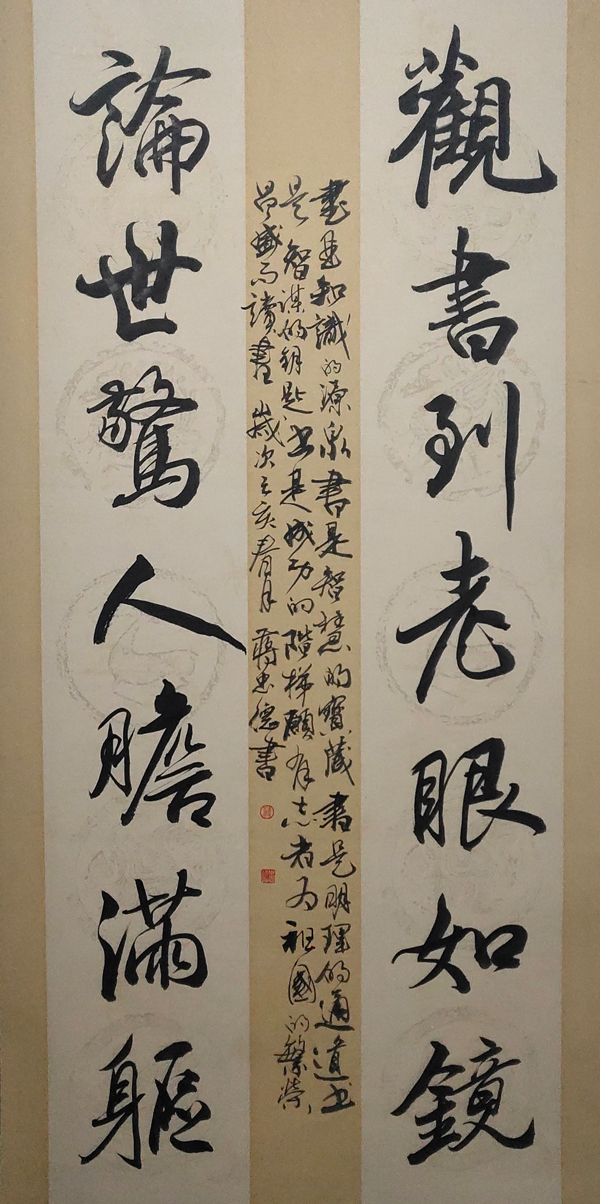 觀書到老眼如鏡
書是知識的源泉書是智慧的寶藏書是明理的通道書
是智謀的鑰匙書是成功的階梯願有志者為祖國的繁榮
昌盛而讀書歲次己亥春月蔣忠德書
論世驚人膽滿軀